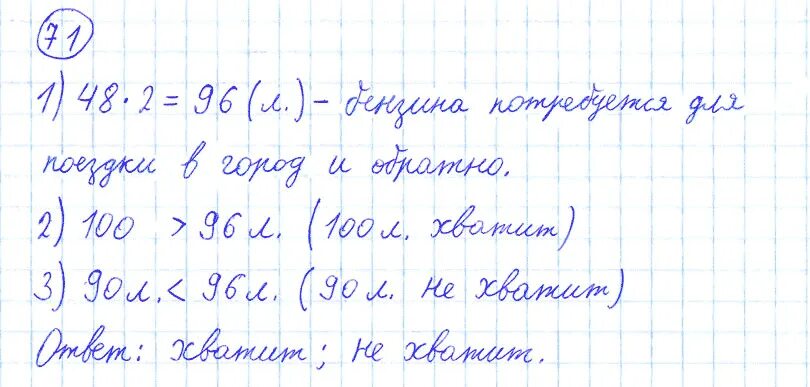 71
1) 48 · 2 = 96 (л.) – бензина потребуется для
поездки в город и обратно.
2) 100 > 96 л. (100 л. хватит)
3) 90 л. < 96 л. (90 л. не хватит)
Ответ: хватит; не хватит.